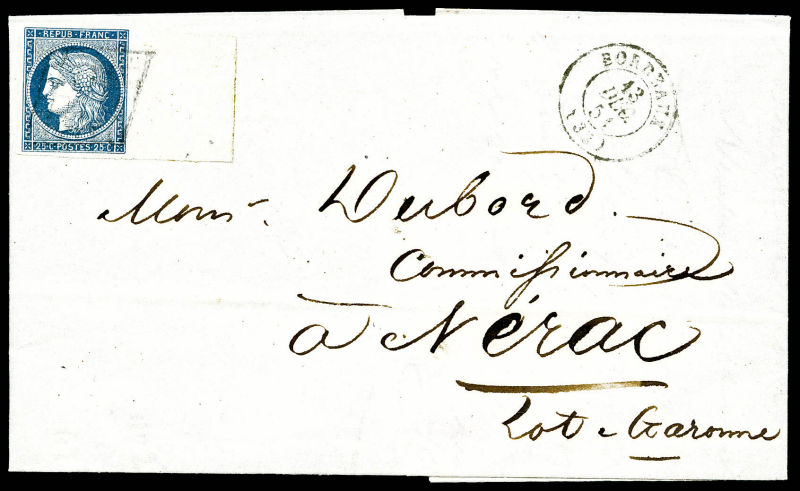 REPUB·FRANC·
25·C·POSTES·25·C·
BORDEAUX
13
DEC.
51
(32)
Monsr. Dubord.
Commissionnaire
à Nérac
Lot-e-Garonne